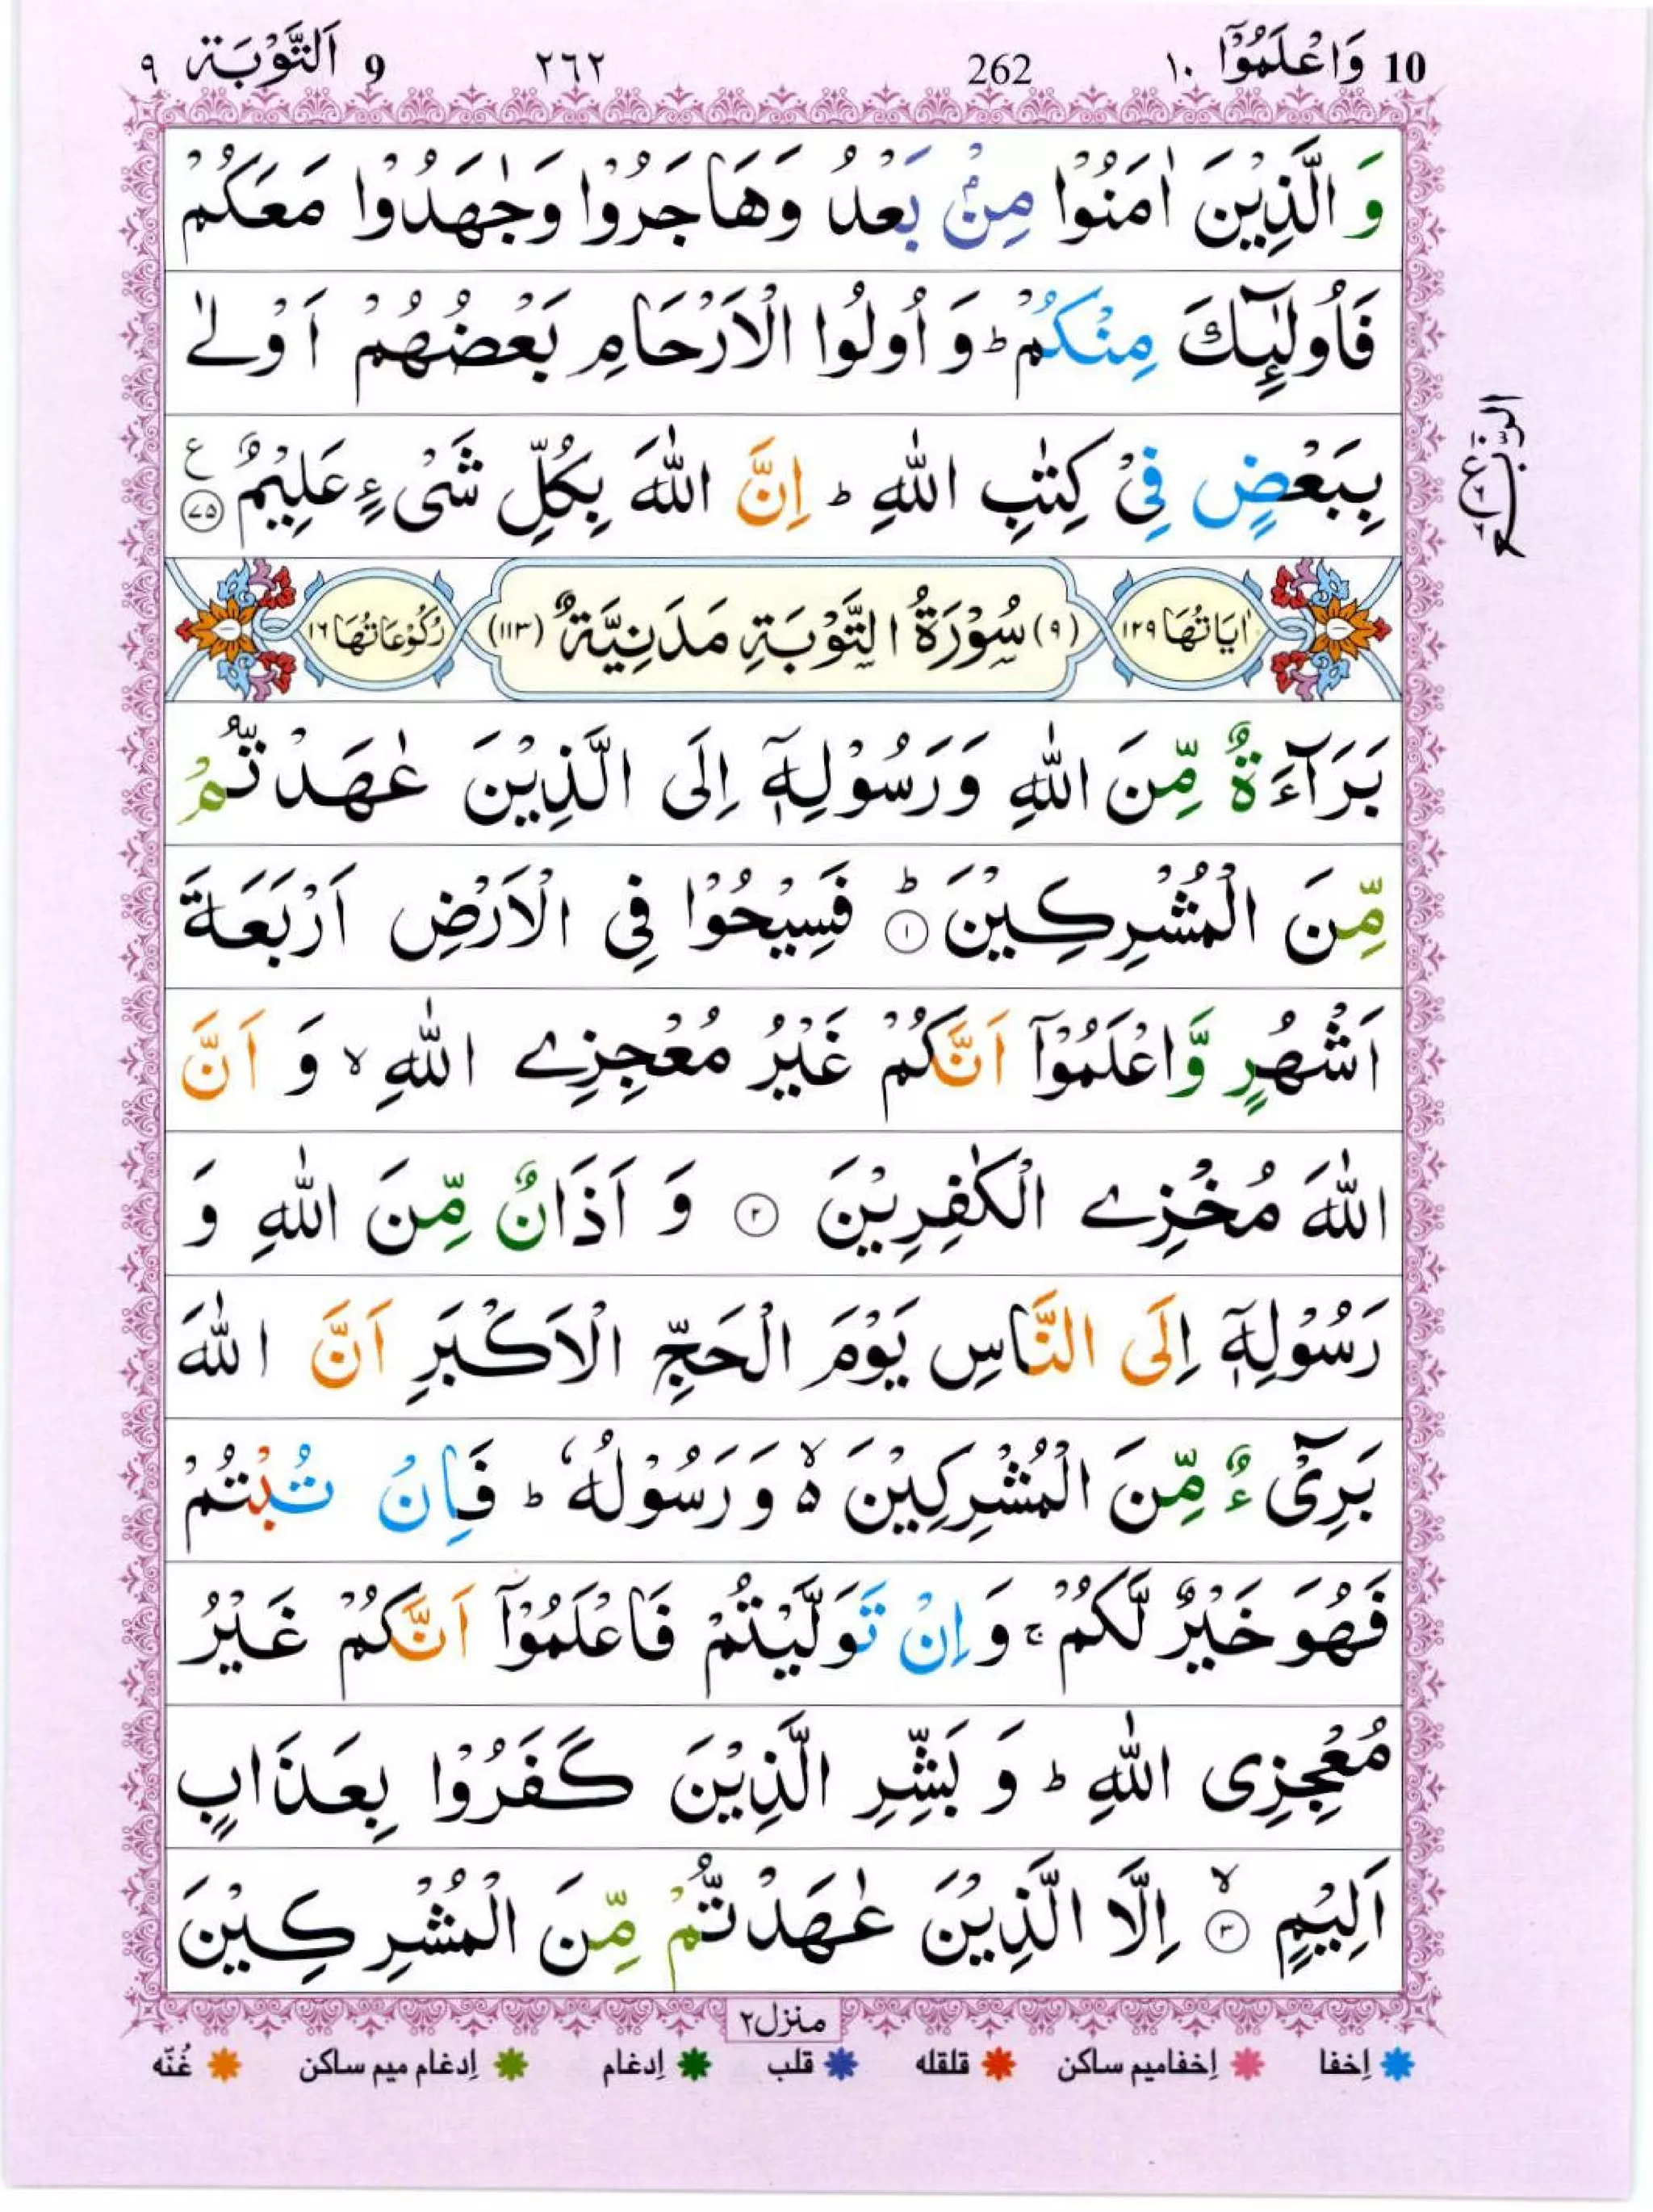 10 وَاعْلَمُوْۤا ١٠ 262 ٢٦٢ 9 اَلتَّوْبَة ٩
وَالَّذِيْنَ اٰمَنُوْا مِنْۢ بَعْدُ وَهَاجَرُوْا وَجٰهَدُوْا مَعَكُمْ
فَاُولٰٓئِكَ مِنْكُمْ ؕ وَ اُولُوا الْاَرْحَامِ بَعْضُهُمْ اَوْلٰى
بِبَعْضٍ فِیْ كِتٰبِ اللّٰهِ ؕ اِنَّ اللّٰهَ بِكُلِّ شَیْءٍ عَلِيْمٌ ﴿٧٥﴾ ع
الرُّبْع
اٰيَاتُهَا ١٢٩ (٩) سُوْرَةُ التَّوْبَةِ مَدَنِيَّةٌ (١١٣) رُكُوْعَاتُهَا ١٦
بَرَآءَةٌ مِّنَ اللّٰهِ وَرَسُوْلِهٖۤ اِلَى الَّذِيْنَ عٰهَدْتُّمْ
مِّنَ الْمُشْرِكِيْنَ ؕ ﴿١﴾ فَسِيْحُوْا فِى الْاَرْضِ اَرْبَعَةَ
اَشْهُرٍ وَّاعْلَمُوْۤا اَنَّكُمْ غَيْرُ مُعْجِزِى اللّٰهِ ۙ وَ اَنَّ
اللّٰهَ مُخْزِى الْكٰفِرِيْنَ ﴿٢﴾ وَ اَذَانٌ مِّنَ اللّٰهِ وَ
رَسُوْلِهٖۤ اِلَى النَّاسِ يَوْمَ الْحَجِّ الْاَكْبَرِ اَنَّ اللّٰهَ
بَرِیْٓءٌ مِّنَ الْمُشْرِكِيْنَ ۙ۬ وَ رَسُوْلُهٗ ؕ فَاِنْ تُبْتُمْ
فَهُوَ خَيْرٌ لَّكُمْ ۚ وَ اِنْ تَوَلَّيْتُمْ فَاعْلَمُوْۤا اَنَّكُمْ غَيْرُ
مُعْجِزِى اللّٰهِ ؕ وَ بَشِّرِ الَّذِيْنَ كَفَرُوْا بِعَذَابٍ
اَلِيْمٍ ۙ ﴿٣﴾ اِلَّا الَّذِيْنَ عٰهَدْتُّمْ مِّنَ الْمُشْرِكِيْنَ
منزل ٢
اِخفا اِخفامیم ساکن قلقله قلب اِدغام اِدغام میم ساکن غُنّه